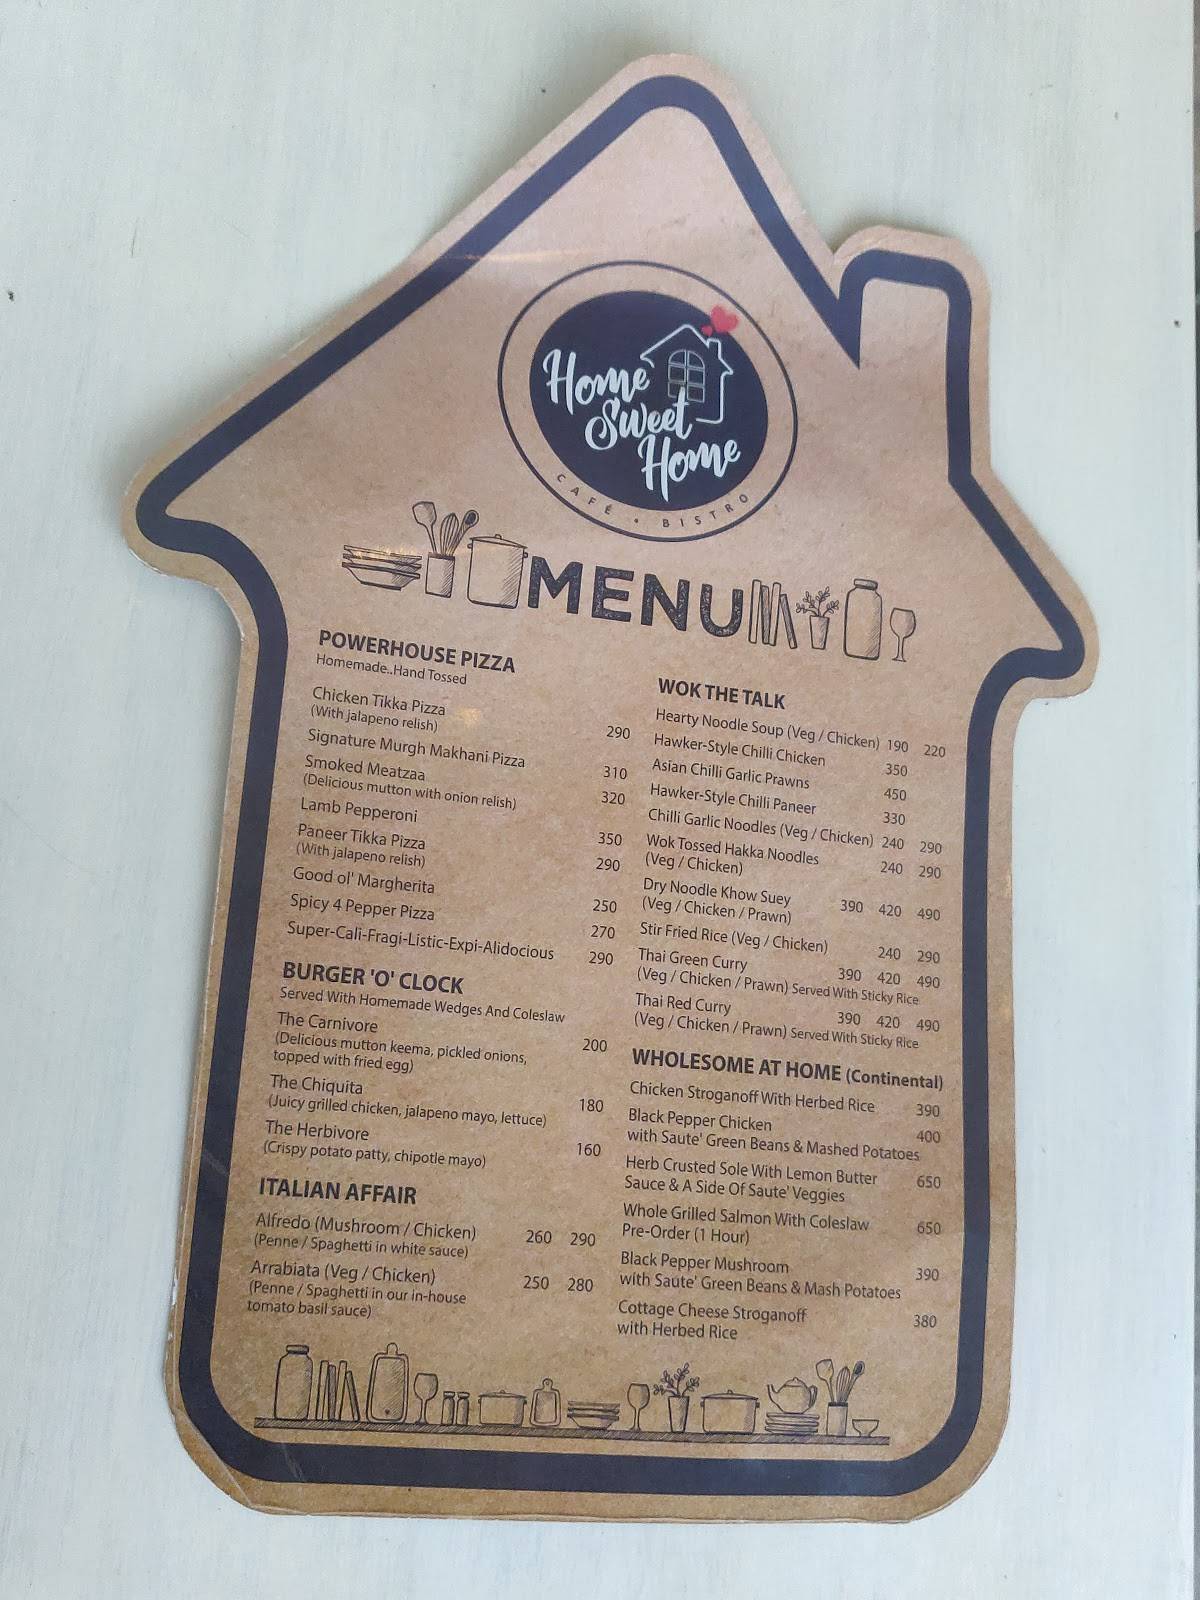 Home
Sweet
Home
CAFÉ • BISTRO
MENU
POWERHOUSE PIZZA
Homemade..Hand Tossed
Chicken Tikka Pizza 290
(With jalapeno relish)
Signature Murgh Makhani Pizza 310
Smoked Meatzaa 320
(Delicious mutton with onion relish)
Lamb Pepperoni 350
Paneer Tikka Pizza 290
(With jalapeno relish)
Good ol' Margherita 250
Spicy 4 Pepper Pizza 270
Super-Cali-Fragi-Listic-Expi-Alidocious 290
BURGER 'O' CLOCK
Served With Homemade Wedges And Coleslaw
The Carnivore 200
(Delicious mutton keema, pickled onions,
topped with fried egg)
The Chiquita 180
(Juicy grilled chicken, jalapeno mayo, lettuce)
The Herbivore 160
(Crispy potato patty, chipotle mayo)
ITALIAN AFFAIR
Alfredo (Mushroom / Chicken) 260 290
(Penne / Spaghetti in white sauce)
Arrabiata (Veg / Chicken) 250 280
(Penne / Spaghetti in our in-house
tomato basil sauce)
WOK THE TALK
Hearty Noodle Soup (Veg / Chicken) 190 220
Hawker-Style Chilli Chicken 350
Asian Chilli Garlic Prawns 450
Hawker-Style Chilli Paneer 330
Chilli Garlic Noodles (Veg / Chicken) 240 290
Wok Tossed Hakka Noodles 240 290
(Veg / Chicken)
Dry Noodle Khow Suey 390 420 490
(Veg / Chicken / Prawn)
Stir Fried Rice (Veg / Chicken) 240 290
Thai Green Curry 390 420 490
(Veg / Chicken / Prawn) Served With Sticky Rice
Thai Red Curry 390 420 490
(Veg / Chicken / Prawn) Served With Sticky Rice
WHOLESOME AT HOME (Continental)
Chicken Stroganoff With Herbed Rice 390
Black Pepper Chicken 400
with Saute' Green Beans & Mashed Potatoes
Herb Crusted Sole With Lemon Butter 650
Sauce & A Side Of Saute' Veggies
Whole Grilled Salmon With Coleslaw 650
Pre-Order (1 Hour)
Black Pepper Mushroom 390
with Saute' Green Beans & Mash Potatoes
Cottage Cheese Stroganoff 380
with Herbed Rice